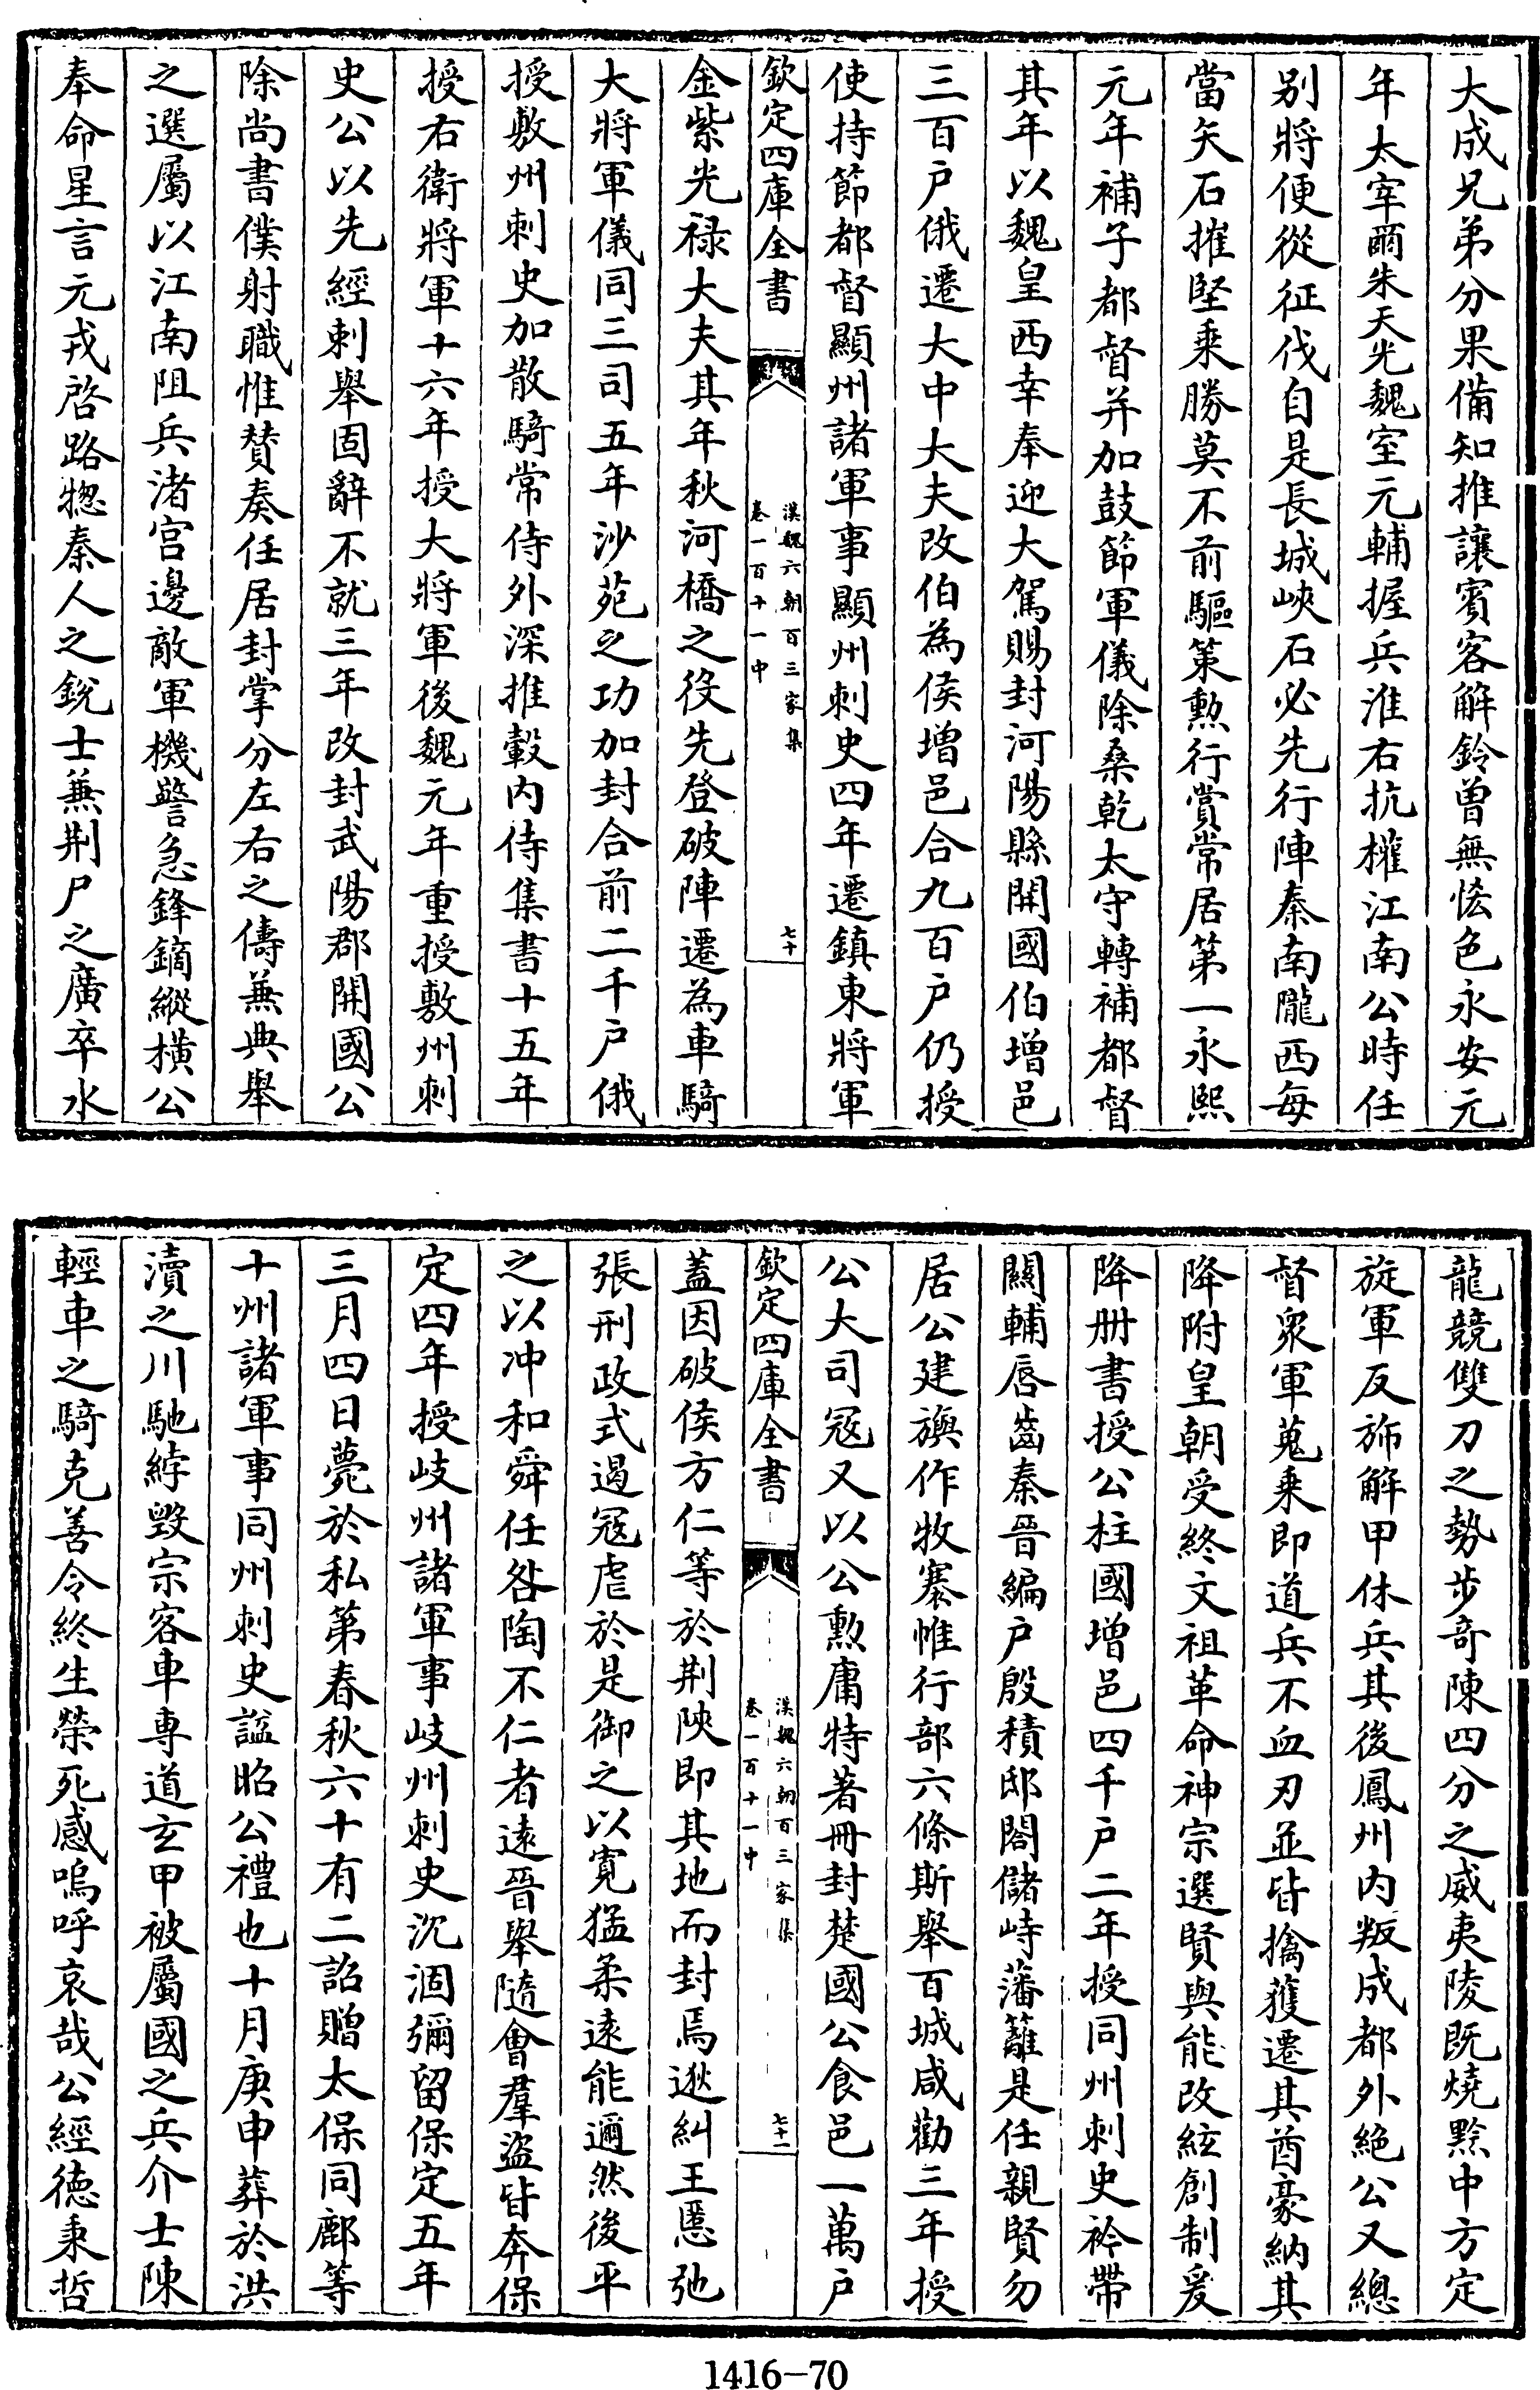 大成兄弟分果備知推讓賓客解鈴曾無恡色永安元
年太宰爾朱天光魏室元輔握兵淮右抗權江南公時任
别將便從征伐自是長城峽石必先行陣秦南隴西每
當矢石摧堅乗勝莫不前驅策勲行賞常居第一永熙
元年補子都督并加鼓節軍儀除桑乾太守轉補都督
其年以魏皇西幸奉迎大駕賜封河陽縣開國伯增邑
三百户俄遷大中大夫改伯為侯增邑合九百户仍授
使持節都督顯州諸軍事顯州刺史四年遷鎮東將軍
欽定四庫全書
漢魏六朝百三家集
卷一百十一中
七十
金紫光禄大夫其年秋河橋之役先登破陣遷為車騎
大將軍儀同三司五年沙苑之功加封合前二千户俄
授敷州刺史加散騎常侍外深推轂内侍集書十五年
授右衛將軍十六年授大將軍後魏元年重授敷州刺
史公以先經刺舉固辭不就三年改封武陽郡開國公
除尚書僕射職惟贊奏任居封掌分左右之儔兼典舉
之選屬以江南阻兵渚宫邊敵軍機警急鋒鏑縱横公
奉命星言元戎啓路揔秦人之銳士兼荆尸之廣卒水
龍競雙刀之勢步奇陳四分之威夷陵既燒黔中方定
旋軍反斾解甲休兵其後鳳州内叛成都外絶公又總
督衆軍蒐乗即道兵不血刃並皆擒獲遷其酋豪納其
降附皇朝受終文祖革命神宗選賢與能改絃創制爰
降册書授公柱國增邑四千户二年授同州刺史衿帶
關輔唇齒秦晉編户殷積邸閣儲峙藩籬是任親賢勿
居公建旟作牧褰帷行部六條斯舉百城咸勸三年授
公大司冦又以公勲庸特著冊封楚國公食邑一萬户
欽定四庫全書
漢魏六朝百三家集
卷一百十一中
七十一
蓋因破侯方仁等於荆陜即其地而封焉逖糾王慝弛
張刑政式遏冦虐於是御之以寛猛柔逺能邇然後平
之以冲和舜任咎陶不仁者逺晉舉隨會羣盗皆奔保
定四年授岐州諸軍事岐州刺史沉涸彌留保定五年
三月四日薨於私第春秋六十有二詔贈太保同鄜等
十州諸軍事同州刺史諡昭公禮也十月庚申葬於洪
瀆之川馳綍毁宗客車専道玄甲被屬國之兵介士陳
輕車之騎克善令終生榮死感嗚呼哀哉公經徳秉哲
1416-70